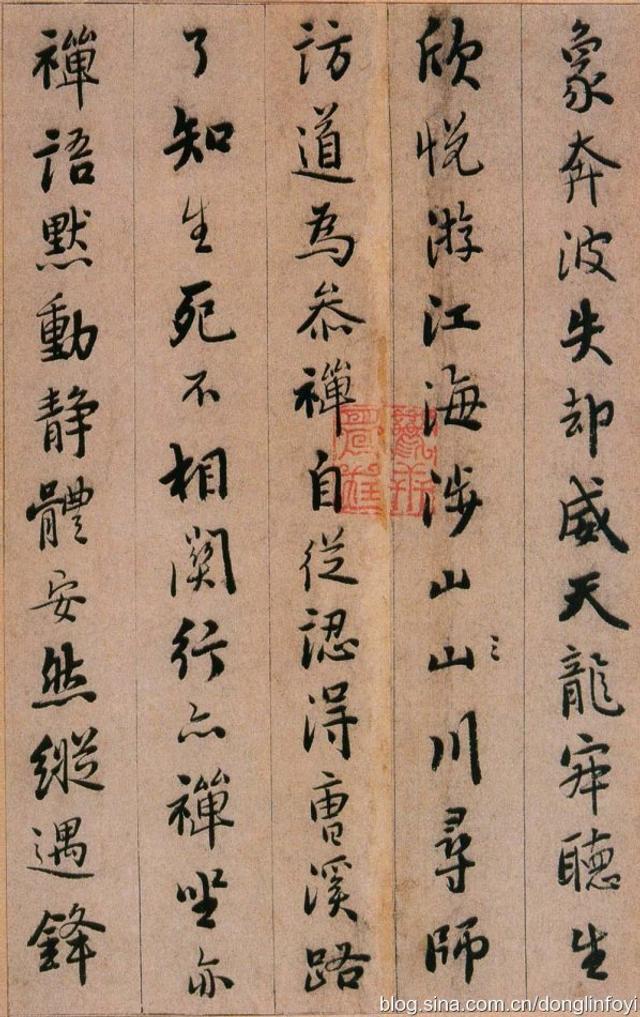 象奔波失却威天龍寂聽生
欣悦游江海涉山山川尋師
訪道為叅禪自從認得曹溪路
了知生死不相關行亦禪坐亦
禪語默動静體安然縱遇鋒
blog.sina.com.cn/donglinfoyi